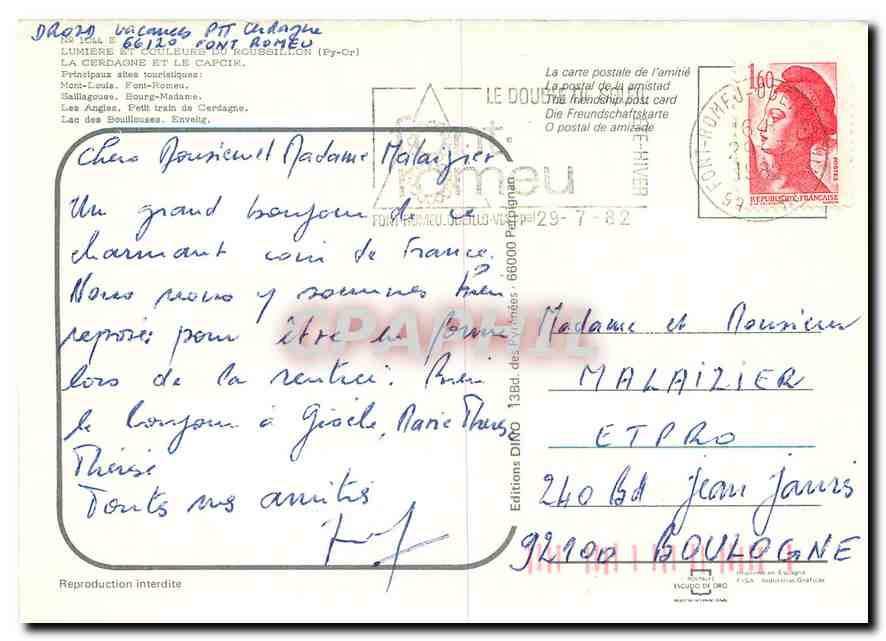 DROZD vacances PTT Cerdagne
66120 FONT ROMEU
No 1044 E
LUMIERE ET COULEURS DU ROUSSILLON (Py-Or)
LA CERDAGNE ET LE CAPCIR.
Principaux sites touristiques:
Mont-Louis. Font-Romeu.
Saillagouse. Bourg-Madame.
Les Angles. Petit train de Cerdagne.
Lac des Bouillouses. Enveitg.
La carte postale de l'amitié
La postal de la amistad
The friendship post card
Die Freundschaftskarte
O postal de amizade
LE DOUBLE AU SOLEIL
ETE-HIVER
font.
romeu
FONT-ROMEU.ODEILLO-VIA
29-7-82
66 FONT-ROMEU-ODEILLO
1,60
POSTES
REPUBLIQUE FRANÇAISE
Chers Monsieur et Madame Malaizier
Un grand bonjour de ce
charmant coin de France.
Nous nous y sommes bien
reposés pour être en forme
lors de la rentrée. Bien
le bonjour à Gisèle, Marie Thérèse
Thérèse
Toutes nos amitiés
Editions DINO 13Bd. des Pyrénées - 66000 Perpignan
Madame et Monsieur
MALAIZIER
ETPRO
240 Bd Jean Jaurès
92100 BOULOGNE
CPAPHIL
Reproduction interdite
POSTALES
ESCUDO DE ORO
Impreso en España
F.I.S.A. Industrias Gráficas